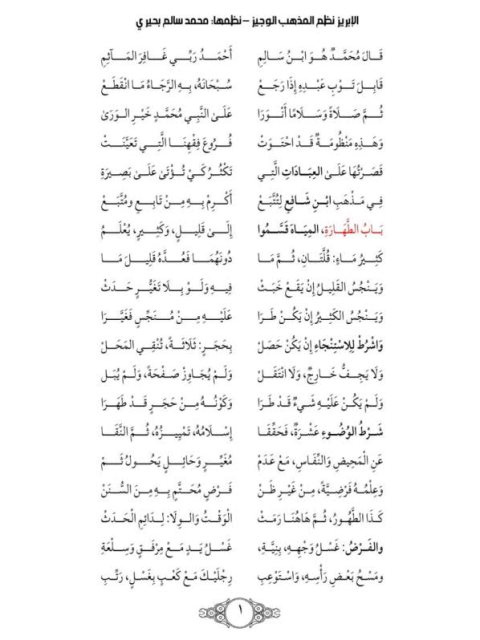 الإبريز نظم المذهب الوجيز – نظمها: محمد سالم بحيري
قَالَ مُحَمَّدٌ هُوَ ابْنُ سَالِمِ أَحْمَدُ رَبِّي غَافِرَ المَآثِمِ
قَابِلَ تَوْبِ عَبْدِهِ إِذَا رَجَعْ سُبْحَانَهُ، بِهِ الرَّجَاءُ مَا انْقَطَعْ
ثُمَّ صَلَاةً وَسَلَامًا أَنْوَرَا عَلَىٰ النَّبِي مُحَمَّدٍ خَيْرِ الوَرَىٰ
وَهَذِهِ مَنْظُومَةٌ قَدْ احْتَوَتْ فُرُوعَ فِقْهِنَا الَّتِي تَعَيَّنَتْ
قَصَرْتُهَا عَلَىٰ العِبَادَاتِ الَّتِي تَكْثُرُ كَيْ تُؤْتَىٰ عَلَىٰ بَصِيرَةِ
فِي مَذْهَبِ ابْنِ شَافِعٍ لِتُتَّبَعْ أَكْرِمْ بِهِ مِنْ تَابِعٍ وَمُتَّبَعْ
بَابُ الطَّهَارَةِ، المِيَاهَ قَسَّمُوا إِلَىٰ قَلِيلٍ، وَكَثِيرٍ، يُعْلَمُ
كَثِيرُ مَاءٍ: قُلَّتَانِ، ثُمَّ مَا دُونَهُمَا فَعُدَّهُ قَلِيلَ مَا
وَيَنْجُسُ القَلِيلُ إِنْ يَقَعْ خَبَثْ فِيهِ وَلَوْ بِلَا تَغَيُّرٍ حَدَثْ
وَيَنْجُسُ الكَثِيرُ إِنْ يَكُنْ طَرَا عَلَيْهِ مِنْ مُنَجِّسٍ فَغَيَّرَا
وَاشْرُطْ لِلِاسْتِنْجَاءِ إِنْ يَكُنْ حَصَلْ بِحَجَرٍ: ثَلَاثَةً، تُنْقِي المَحَلْ
وَلَا يَجِفُّ خَارِجٌ، وَلَا انْتَقَلْ وَلَمْ يُجَاوِزْ صَفْحَةً، وَلَمْ يُبَلْ
وَلَمْ يَكُنْ عَلَيْهِ شَيْءٌ قَدْ طَرَا وَكَوْنُهُ مِنْ حَجَرٍ قَدْ طَهَرَا
شَرْطُ الوُضُوءِ عَشْرَةٌ، فَحَقِّقَا إِسْلَامُهُ، تَمْيِيزُهُ، ثُمَّ النَّقَا
عَنِ الْمَحِيضِ وَالنِّفَاسِ، مَعْ عَدَمْ مُغَيِّرٍ وَحَائِلٍ يَحُولُ ثَمّْ
وَعِلْمُهُ فَرْضِيَّةً، مِنْ غَيْرِ ظَنْ فَرْضٍ مُحَتَّمٍ بِهِ مِنَ السُّنَنْ
كَذَا الطَّهُورُ، ثُمَّ هَاهُنَا رَمَتْ الْوَقْتُ وَالوِلَا: لِدَائِمِ الْحَدَثْ
والفَرْضُ: غَسْلُ وَجْهِهِ، بِنِيَّةِ، غَسْلُ يَدٍ مَعْ مِرْفَقٍ وَسِلْعَةِ
وَمَسْحُ بَعْضِ رَأْسِهِ، وَاسْتَوْعِبِ رِجْلَيْكَ مَعْ كَعْبٍ بِغَسْلٍ، رَتِّبِ
١